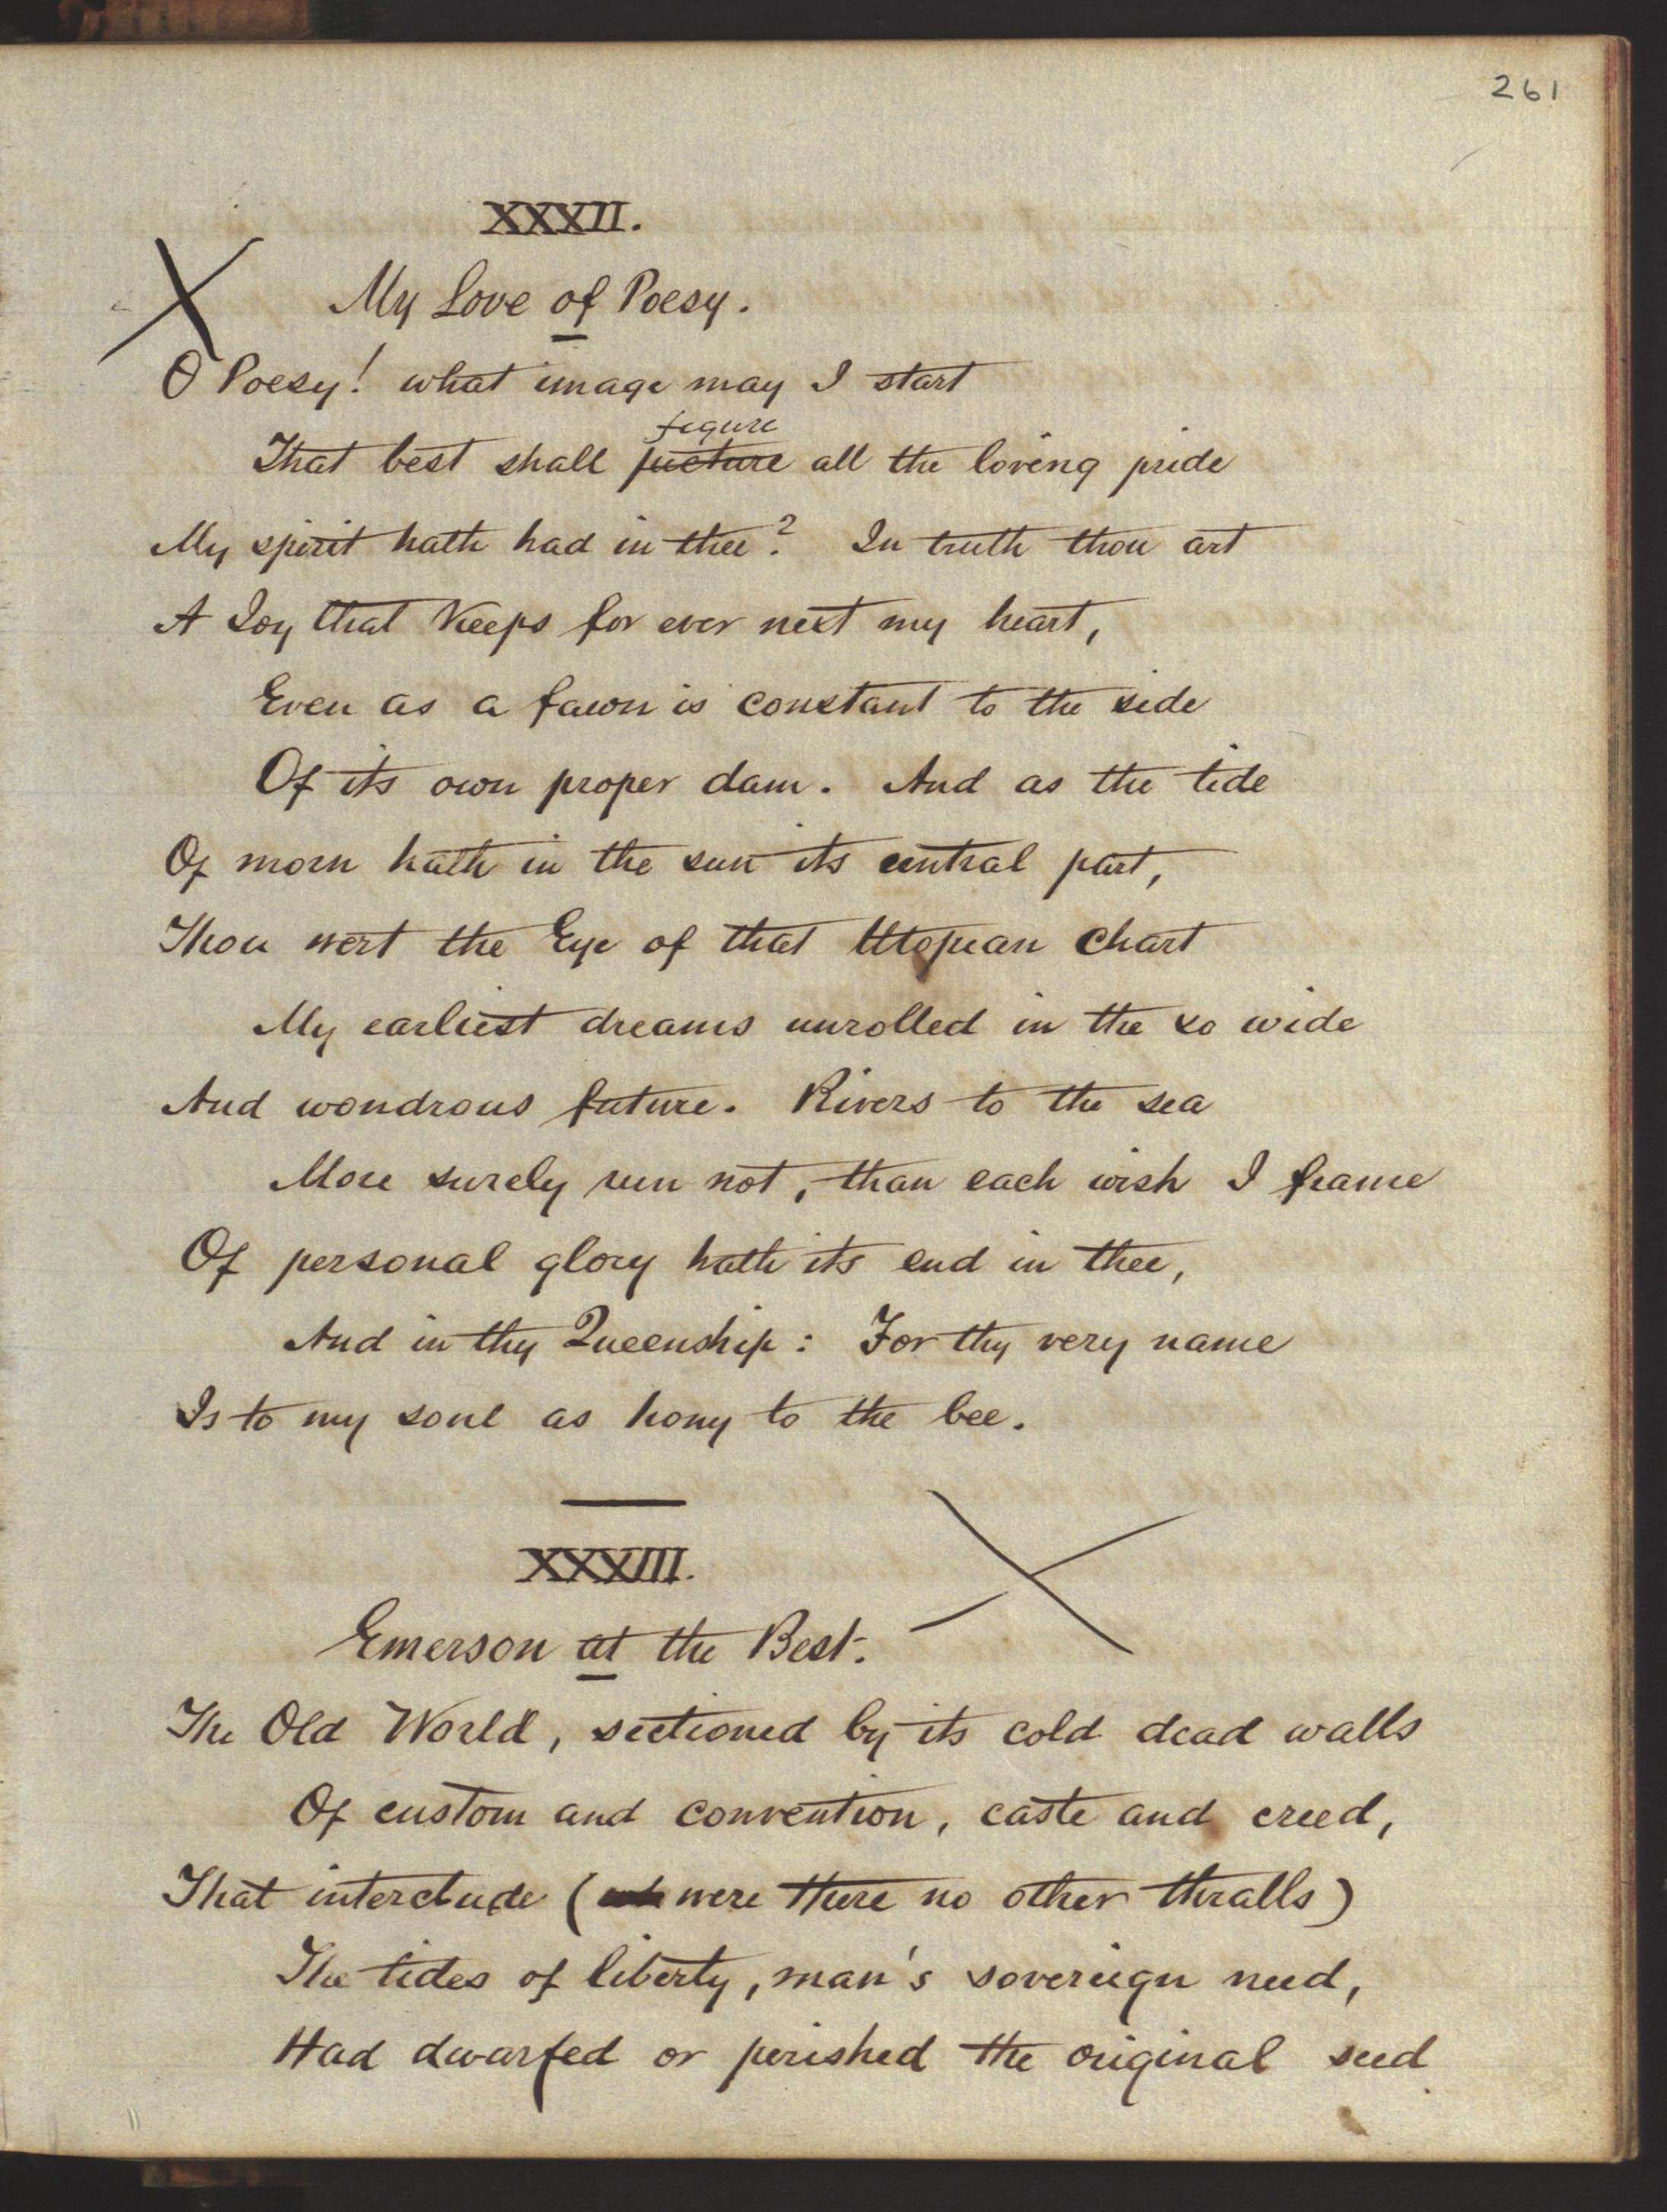 261
XXXII.
My Love of Poesy.
O Poesy! what image may I start
figure
That best shall picture all the loving pride
My spirit hath had in thee? In truth thou art
A Joy that keeps for ever next my heart,
Even as a fawn is constant to the side
Of its own proper dam. And as the tide
Of morn hath in the sun its central part,
Thou wert the Eye of that Utopian Chart
My earliest dreams unrolled in the so wide
And wondrous future. Rivers to the sea
More surely run not, than each wish I frame
Of personal glory hath its end in thee,
And in thy Queenship: For thy very name
Is to my soul as hony to the bee.
XXXIII.
Emerson at the Best.
The Old World, sectioned by its cold dead walls
Of custom and convention, caste and creed,
That interclude (were there no other thralls)
The tides of liberty, man's sovereign need,
Had dwarfed or perished the original seed